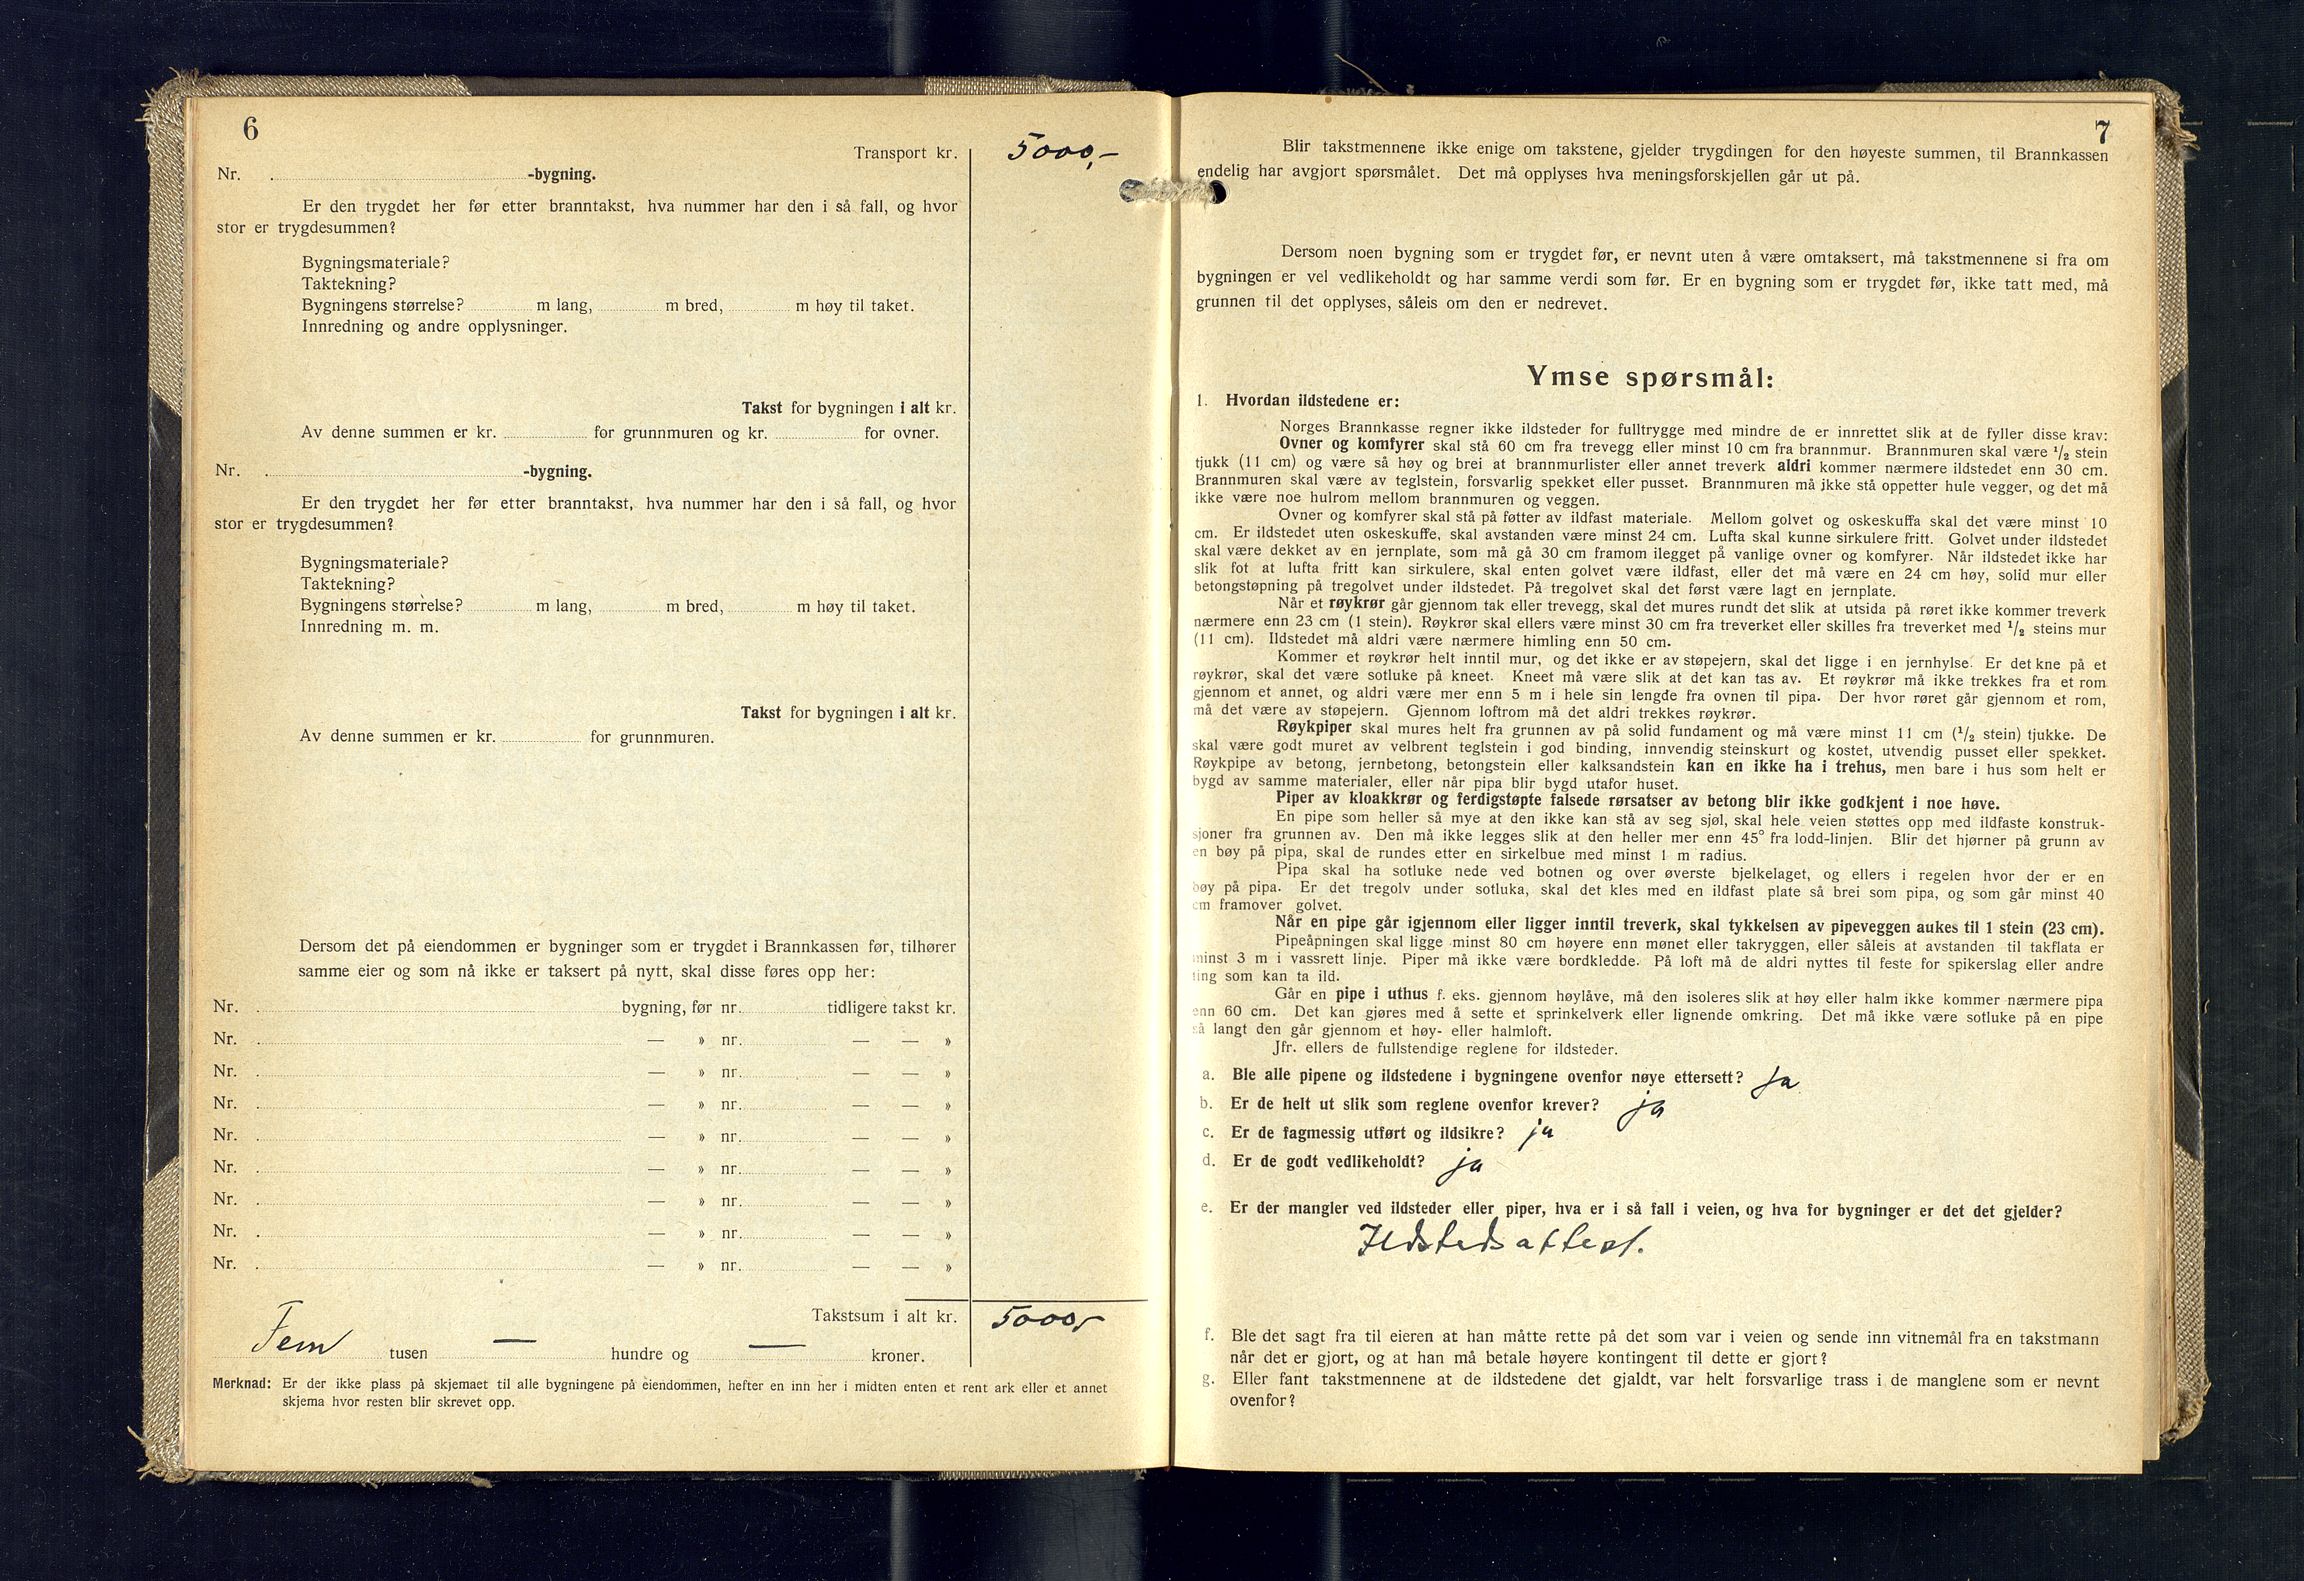 6
Transport kr. 5000,-
Nr. -bygning.
Er den trygdet her før etter branntakst, hva nummer har den i så fall, og hvor
stor er trygdesummen?
Bygningsmateriale?
Taktekning?
Bygningens størrelse? m lang, m bred, m høy til taket.
Innredning og andre opplysninger.
Takst for bygningen i alt kr.
Av denne summen er kr. for grunnmuren og kr. for ovner.
Nr. -bygning.
Er den trygdet her før etter branntakst, hva nummer har den i så fall, og hvor
stor er trygdesummen?
Bygningsmateriale?
Taktekning?
Bygningens størrelse? m lang, m bred, m høy til taket.
Innredning m. m.
Takst for bygningen i alt kr.
Av denne summen er kr. for grunnmuren.
Dersom det på eiendommen er bygninger som er trygdet i Brannkassen før, tilhører
samme eier og som nå ikke er taksert på nytt, skal disse føres opp her:
Nr. bygning, før nr. tidligere takst kr.
Nr. — » nr. — — »
Nr. — » nr. — — »
Nr. — » nr. — — »
Nr. — » nr. — — »
Nr. — » nr. — — »
Nr. — » nr. — — »
Nr. — » nr. — — »
Nr. — » nr. — — »
Takstsum i alt kr. 5000,-
Fem tusen — hundre og — kroner.
Merknad: Er der ikke plass på skjemaet til alle bygningene på eiendommen, hefter en inn her i midten enten et rent ark eller et annet
skjema hvor resten blir skrevet opp.
7
Blir takstmennene ikke enige om takstene, gjelder trygdingen for den høyeste summen, til Brannkassen
endelig har avgjort spørsmålet. Det må opplyses hva meningsforskjellen går ut på.
Dersom noen bygning som er trygdet før, er nevnt uten å være omtaksert, må takstmennene si fra om
bygningen er vel vedlikeholdt og har samme verdi som før. Er en bygning som er trygdet før, ikke tatt med, må
grunnen til det opplyses, såleis om den er nedrevet.
Ymse spørsmål:
1. Hvordan ildstedene er:
Norges Brannkasse regner ikke ildsteder for fulltrygge med mindre de er innrettet slik at de fyller disse krav:
Ovner og komfyrer skal stå 60 cm fra trevegg eller minst 10 cm fra brannmur. Brannmuren skal være ½ stein
tjukk (11 cm) og være så høy og brei at brannmurlister eller annet treverk aldri kommer nærmere ildstedet enn 30 cm.
Brannmuren skal være av teglstein, forsvarlig spekket eller pusset. Brannmuren må ikke stå oppetter hule vegger, og det må
ikke være noe hulrom mellom brannmuren og veggen.
Ovner og komfyrer skal stå på føtter av ildfast materiale. Mellom golvet og oskeskuffa skal det være minst 10
cm. Er ildstedet uten oskeskuffe, skal avstanden være minst 24 cm. Lufta skal kunne sirkulere fritt. Golvet under ildstedet
skal være dekket av en jernplate, som må gå 30 cm framom ilegget på vanlige ovner og komfyrer. Når ildstedet ikke har
slik fot at lufta fritt kan sirkulere, skal enten golvet være ildfast, eller det må være en 24 cm høy, solid mur eller
betongstøpning på tregolvet under ildstedet. På tregolvet skal det først være lagt en jernplate.
Når et røykrør går gjennom tak eller trevegg, skal det mures rundt det slik at utsida på røret ikke kommer treverk
nærmere enn 23 cm (1 stein). Røykrør skal ellers være minst 30 cm fra treverket eller skilles fra treverket med ½ steins mur
(11 cm). Ildstedet må aldri være nærmere himling enn 50 cm.
Kommer et røykrør helt inntil mur, og det ikke er av støpejern, skal det ligge i en jernhylse. Er det kne på et
røykrør, skal det være sotluke på kneet. Kneet må være slik at det kan tas av. Et røykrør må ikke trekkes fra et rom
gjennom et annet, og aldri være mer enn 5 m i hele sin lengde fra ovnen til pipa. Der hvor røret går gjennom et rom,
må det være av støpejern. Gjennom loftrom må det aldri trekkes røykrør.
Røykpiper skal mures helt fra grunnen av på solid fundament og må være minst 11 cm (½ stein) tjukke. De
skal være godt muret av velbrent teglstein i god binding, innvendig steinskurt og kostet, utvendig pusset eller spekket.
Røykpipe av betong, jernbetong, betongstein eller kalksandstein kan en ikke ha i trehus, men bare i hus som helt er
bygd av samme materialer, eller når pipa blir bygd utafor huset.
Piper av kloakkrør og ferdigstøpte falsede rørsatser av betong blir ikke godkjent i noe høve.
En pipe som heller så mye at den ikke kan stå av seg sjøl, skal hele veien støttes opp med ildfaste konstruk-
sjoner fra grunnen av. Den må ikke legges slik at den heller mer enn 45° fra lodd-linjen. Blir det hjørner på grunn av
en bøy på pipa, skal de rundes etter en sirkelbue med minst 1 m radius.
Pipa skal ha sotluke nede ved botnen og over øverste bjelkelaget, og ellers i regelen hvor der er en
bøy på pipa. Er det tregolv under sotluka, skal det kles med en ildfast plate så brei som pipa, og som går minst 40
cm framover golvet.
Når en pipe går igjennom eller ligger inntil treverk, skal tykkelsen av pipeveggen aukes til 1 stein (23 cm).
Pipeåpningen skal ligge minst 80 cm høyere enn mønet eller takryggen, eller såleis at avstanden til takflata er
minst 3 m i vassrett linje. Piper må ikke være bordkledde. På loft må de aldri nyttes til feste for spikerslag eller andre
ting som kan ta ild.
Går en pipe i uthus f. eks. gjennom høylåve, må den isoleres slik at høy eller halm ikke kommer nærmere pipa
enn 60 cm. Det kan gjøres med å sette et sprinkelverk eller lignende omkring. Det må ikke være sotluke på en pipe
så langt den går gjennom et høy- eller halmloft.
Jfr. ellers de fullstendige reglene for ildsteder.
a. Ble alle pipene og ildstedene i bygningene ovenfor nøye ettersett? ja
b. Er de helt ut slik som reglene ovenfor krever? ja
c. Er de fagmessig utført og ildsikre? ja
d. Er de godt vedlikeholdt? ja
e. Er der mangler ved ildsteder eller piper, hva er i så fall i veien, og hva for bygninger er det det gjelder?
Ildstedsattest.
f. Ble det sagt fra til eieren at han måtte rette på det som var i veien og sende inn vitnemål fra en takstmann
når det er gjort, og at han må betale høyere kontingent til dette er gjort?
g. Eller fant takstmennene at de ildstedene det gjaldt, var helt forsvarlige trass i de manglene som er nevnt
ovenfor?